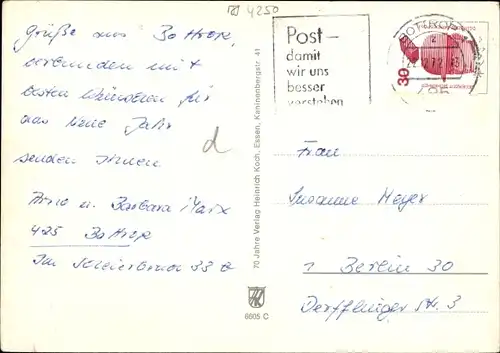 4250
Grüße aus Bottrop,
verbunden mit
besten Wünschen für
das neue Jahr
senden Ihnen
Arno u. Barbara Marx
425 Bottrop
Im 33
70 Jahre Verlag Heinrich Koch, Essen, Kaninenbergstr. 41
6605 C
Post –
damit
wir uns
besser
verstehen
BOTTROP
22.12.72
30
d
Frau
Susanne Meyer
1 Berlin 30
Derfflinger Str. 3